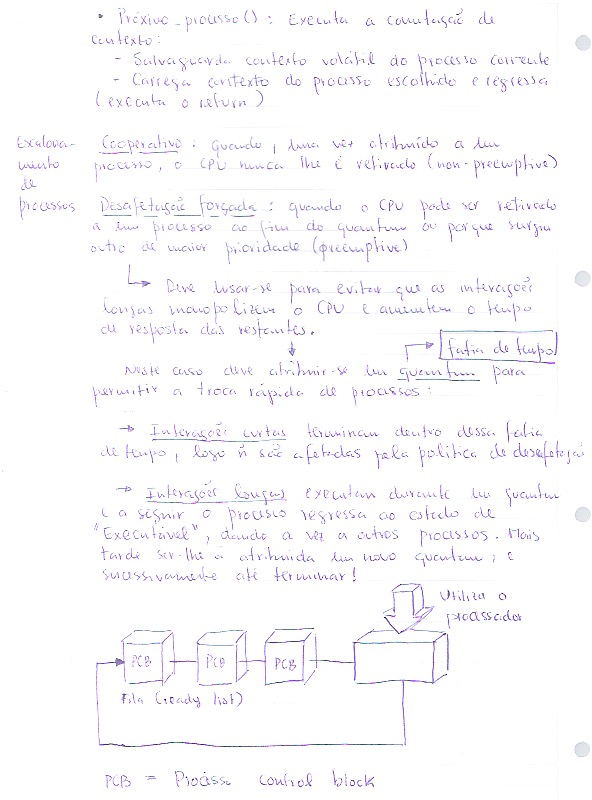 • Próximo_processo() : Executa a comutação de
contexto :
- Salvaguarda contexto volátil do processo corrente
- Carrega contexto do processo escolhido e regressa
(executa o return)
Escalona-
mento
de
processos
Cooperativo : quando, uma vez atribuído a um
processo, o CPU nunca lhe é retirado (non-preemptive)
Desafetação forçada : quando o CPU pode ser retirado
a um processo ao fim do quantum ou porque surgiu
outro de maior prioridade (preemptive)
↳ Deve usar-se para evitar que as interações
longas monopolizem o CPU e aumentem o tempo
de resposta das restantes.
fatia de tempo
Neste caso deve atribuir-se um quantum para
permitir a troca rápida de processos :
→ Interações curtas terminam dentro dessa fatia
de tempo, logo ñ são afetadas pela política de desafetação
→ Interações longas executam durante um quantum
e a seguir o processo regressa ao estado de
"Executável", dando a vez a outros processos. Mais
tarde ser-lhe-á atribuída um novo quantum, e
sucessivamente até terminar!
Utiliza o
processador
PCB PCB PCB
Fila (ready list)
PCB = Process control block